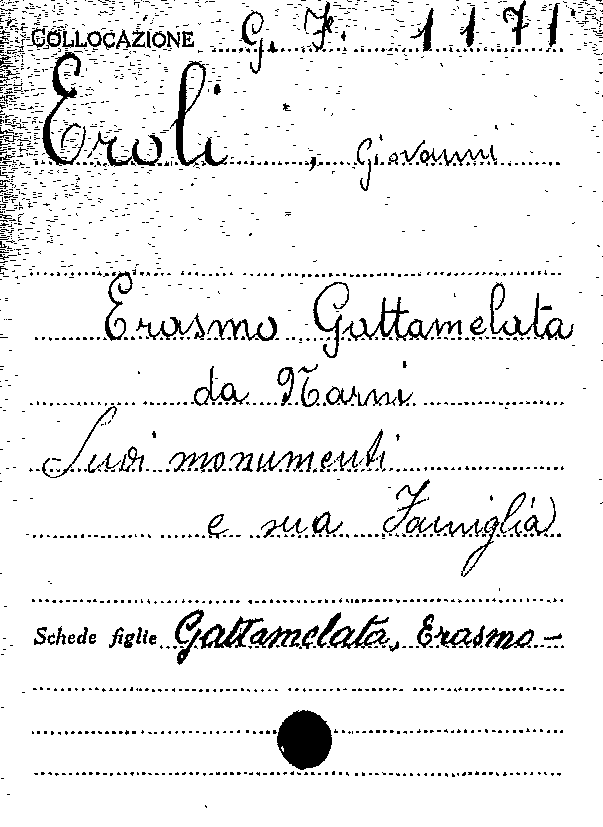 COLLOCAZIONE G. F. 1171
Eroli, Giovanni
Erasmo Gattamelata
da Narni
Suoi monumenti
e sua Famiglia
Schede figlie Gattamelata, Erasmo-